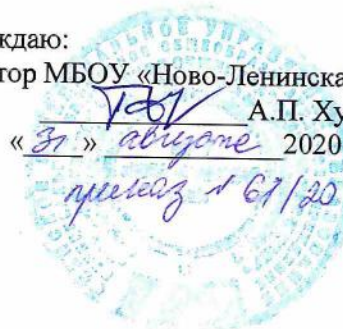 ждаю:
тор МБОУ «Ново-Ленинска
А.П. Ху
«31» августа 2020
приказ № 61/20